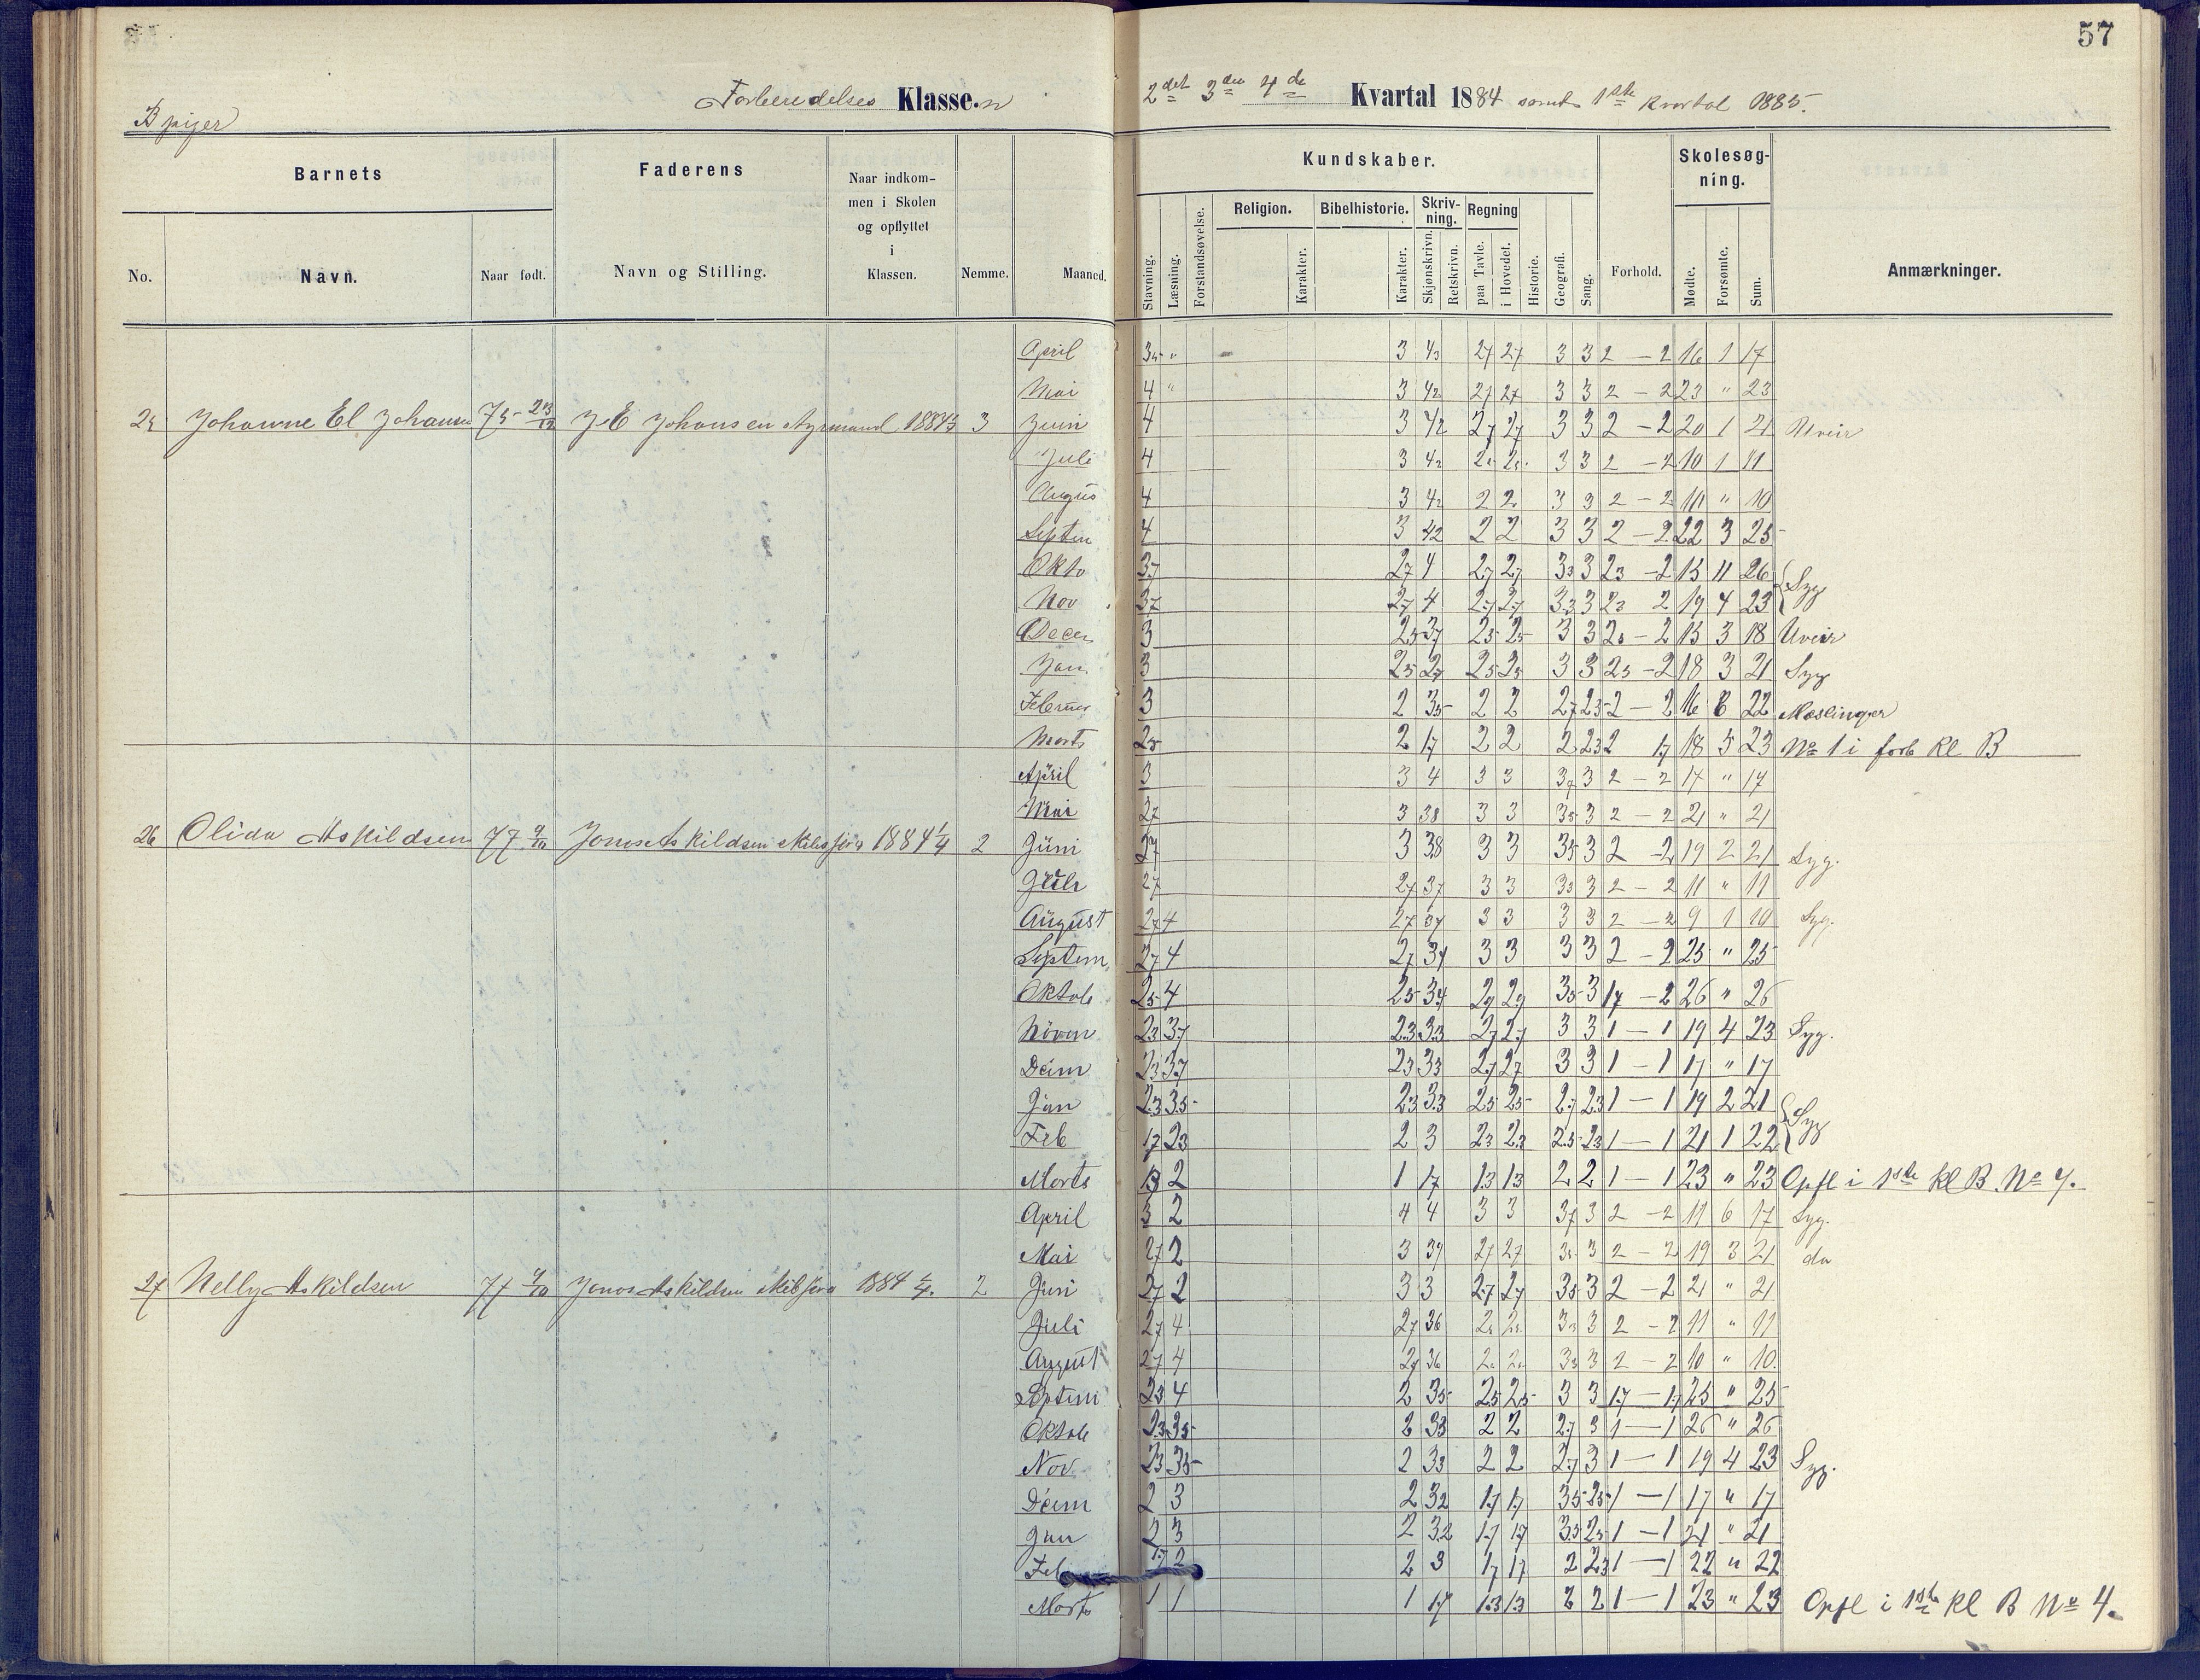 57
Forberedelses Klasse.n
2det 3die 4de Kvartal 1884 samt 1ste Kvartal 1885.
B piger
Barnets
Faderens
Naar indkom-
men i Skolen
og opflyttet
i
Klassen.
Kundskaber.
Skolesøg-
ning.
Religion. Bibelhistorie. Skriv-
ning. Regning
No. Navn. Naar født. Navn og Stilling. Nemme. Maaned.
Stavning. Læsning. Forstandsøvelse. Karakter. Karakter. Skjønskrivn. Retskrivn. paa Tavle. i Hovedet. Historie. Geografi. Sang. Forhold. Mødte. Forsømte. Sum. Anmærkninger.
April 3 2 - 2 16 1 17
Mai 4 " 3 3 3 2 - 2 23 " 23
25 Johanne El Johansen 75 J E Johansen 3 Juin 4 3 3 3 2 - 2 20 1 21 Uveir
Juli 4 3 3 3 2 - 2 10 1 11
Augus 4 3 2 2 3 3 2 - 2 10 " 10
Septem 4 3 2 2 3 3 2 - 2 22 3 25
Okto 37 27 4 27 27 33 3 23 - 2 15 11 26 Syg
Nov 37 27 4 27 27 33 3 23 2 19 4 23
Decem 3 25 37 25 25 3 3 25 - 2 15 3 18 Uveir
Jan 3 25 27 25 25 3 3 25 - 2 18 3 21 Syg
Februar 3 2 35 2 2 27 23 2 - 2 16 6 22 Meslinger
Marts 25 2 17 2 2 2 23 2 17 18 5 23 No 1 i forb Kl B
April 3 3 4 3 3 37 3 2 - 2 17 " 17
Mai 27 3 38 3 3 35 3 2 - 2 21 " 21
26 Olida Askildsen 77 Jonas Askildsen 1884 2 Juni 27 3 38 3 3 35 3 2 - 2 19 2 21 Syg.
Juli 27 27 37 3 3 33 3 2 - 2 11 " 11
August 27 4 27 37 3 3 3 3 2 - 2 9 1 10 Syg.
Septem 27 4 27 34 3 3 3 3 2 - 2 25 " 25
Oktob 25 4 25 34 29 29 35 3 17 - 2 26 " 26
Novem 23 37 23 33 27 27 3 3 1 - 1 19 4 23 Syg.
Decm 23 37 23 33 27 27 3 3 1 - 1 17 " 17
Jan 23 35 23 33 25 25 27 23 1 - 1 19 2 21 Syg
Feb 17 23 2 3 23 23 25 23 1 - 1 21 1 22
Marts 13 2 1 17 13 13 2 2 1 - 1 23 " 23 Opfl i 1ste Kl B. No 7.
April 3 2 4 4 3 3 37 3 2 - 2 11 6 17 Syg.
Mai 27 2 3 39 27 27 3 2 - 2 19 3 21 do
27 Nelly Askildsen 77 Jonas Askildsen 1884 2 Juni 27 2 3 3 27 27 35 3 2 - 2 21 " 21
Juli 27 4 27 36 3 2 - 2 11 " 11
August 27 4 27 36 33 3 2 - 2 10 " 10.
Septem 23 4 2 35 25 25 3 3 17 - 17 25 " 25
Oktob 23 35 2 33 2 2 27 3 1 - 1 26 " 26
Nov. 23 35 2 33 2 2 27 3 1 - 1 19 4 23 Syg.
Decm 2 3 2 32 17 17 35 25 1 - 1 17 " 17
Jan 2 3 2 32 17 17 33 23 1 - 1 21 " 21
Feb 17 2 2 3 17 17 2 23 1 - 1 22 " 22
Marts 1 1 1 17 13 13 2 2 1 - 1 23 " 23 Opfl i 1ste Kl B No 4.